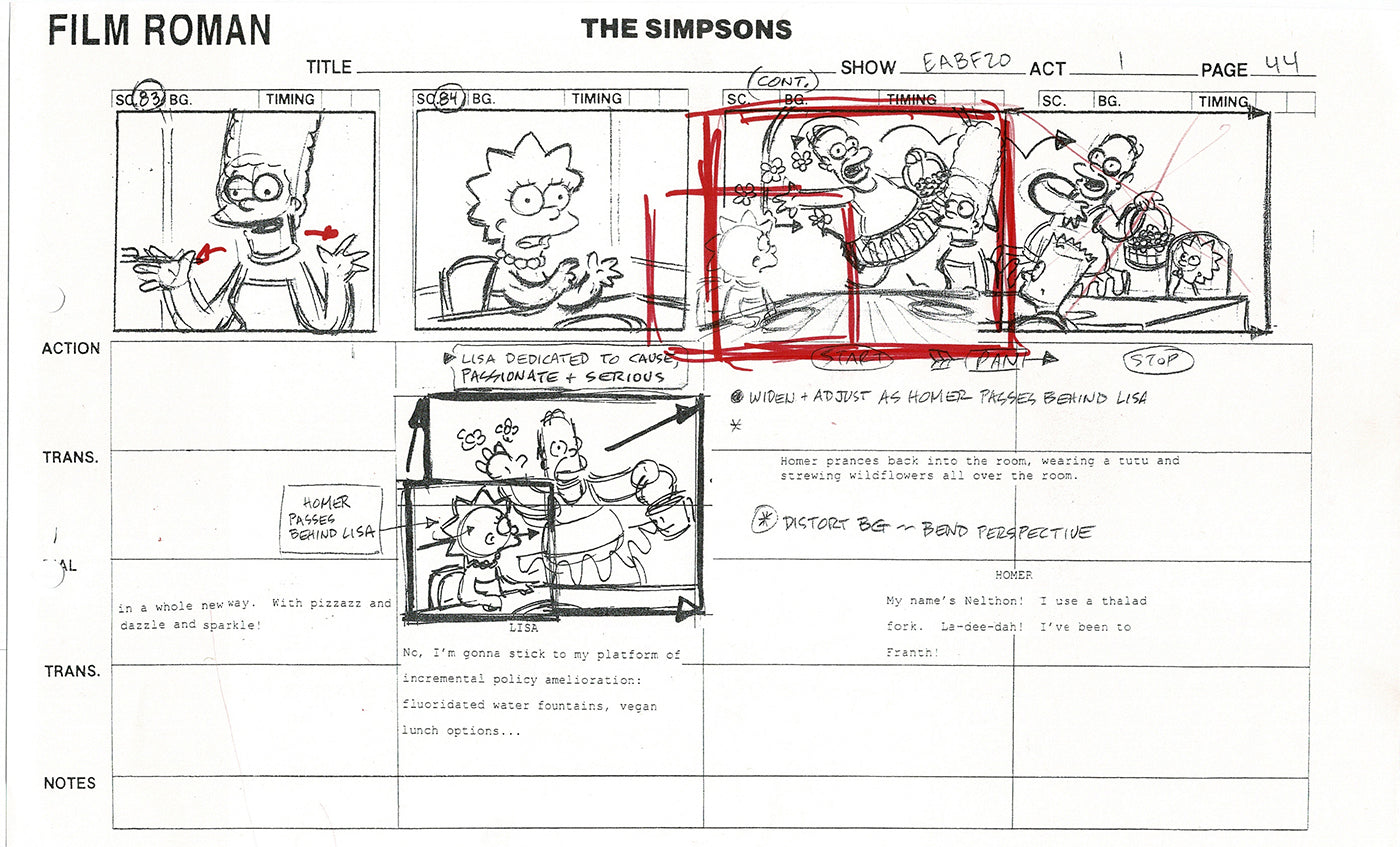 FILM ROMAN
THE SIMPSONS
TITLE SHOW EABF20 ACT 1 PAGE 44
(CONT.)
SC. 83 BG. TIMING
SC. 84 BG. TIMING
SC. BG. TIMING
SC. BG. TIMING
ACTION
LISA DEDICATED TO CAUSE,
PASSIONATE + SERIOUS
START PAN STOP
WIDEN + ADJUST AS HOMER PASSES BEHIND LISA
*
TRANS.
HOMER
PASSES
BEHIND LISA
Homer prances back into the room, wearing a tutu and
strewing wildflowers all over the room.
* DISTORT BG ~ BEND PERSPECTIVE
AL
in a whole new way. With pizzazz and
dazzle and sparkle!
LISA
No, I'm gonna stick to my platform of
incremental policy amelioration:
fluoridated water fountains, vegan
lunch options...
HOMER
My name's Nelthon! I use a thalad
fork. La-dee-dah! I've been to
Franth!
TRANS.
NOTES